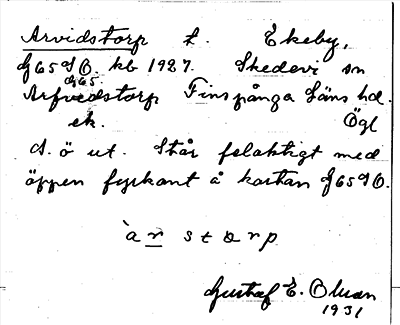 Arvidstorp t. Ekeby,
G65SO. kb 1927. Skedevi sn
G65.
Arfvedstorp Finspånga läns hd.
ek. Ögl
A. ö ut. Står felaktigt med
öppen fyrkant å kartan G65SO.
àr storp
Gustaf E. Olsson
1931